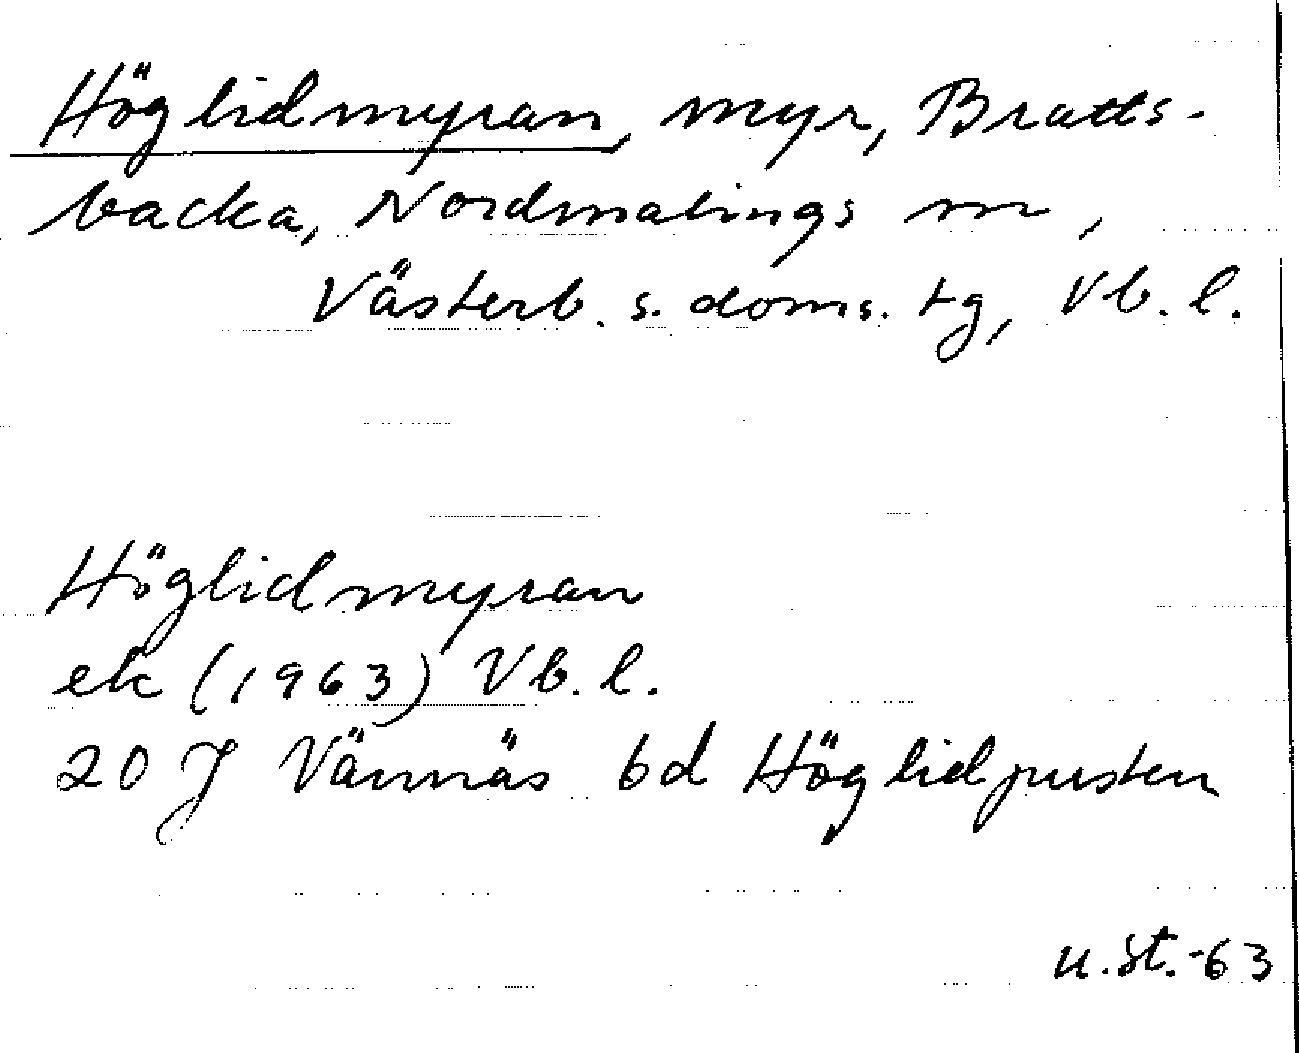 Höglidmyran, myr, Bratts-
backa, Nordmalings sn,
Västerb. s. doms. tg, Vb. l.
Höglidmyran
ek (1963) Vb. l.
20 J Vännäs 6d
U. St. -63